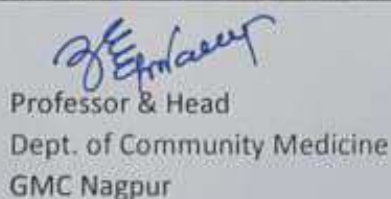 Professor & Head
Dept. of Community Medicine
GMC Nagpur